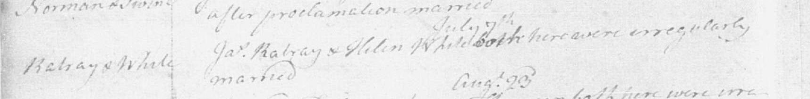 Norman & Swine
after proclamation married
July 7th
Ratray & White
Jas. Ratray & Helen White both here were irregularly
married
Augt. 23
both here were irre